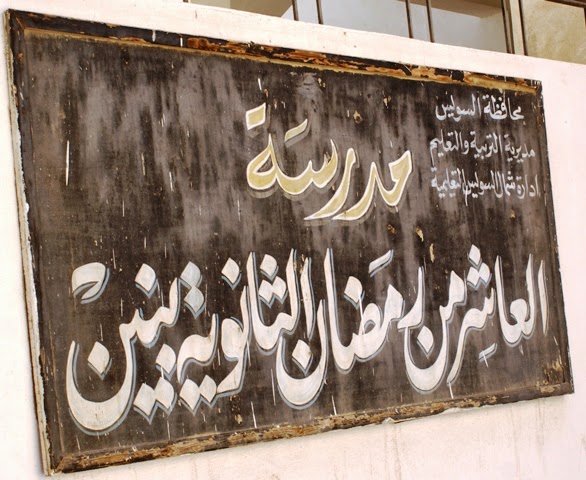 محافظة السويس
مديرية التربية والتعليم
ادارة شمال السويس التعليمية
مدرسة
العاشر من رمضان الثانوية بنين